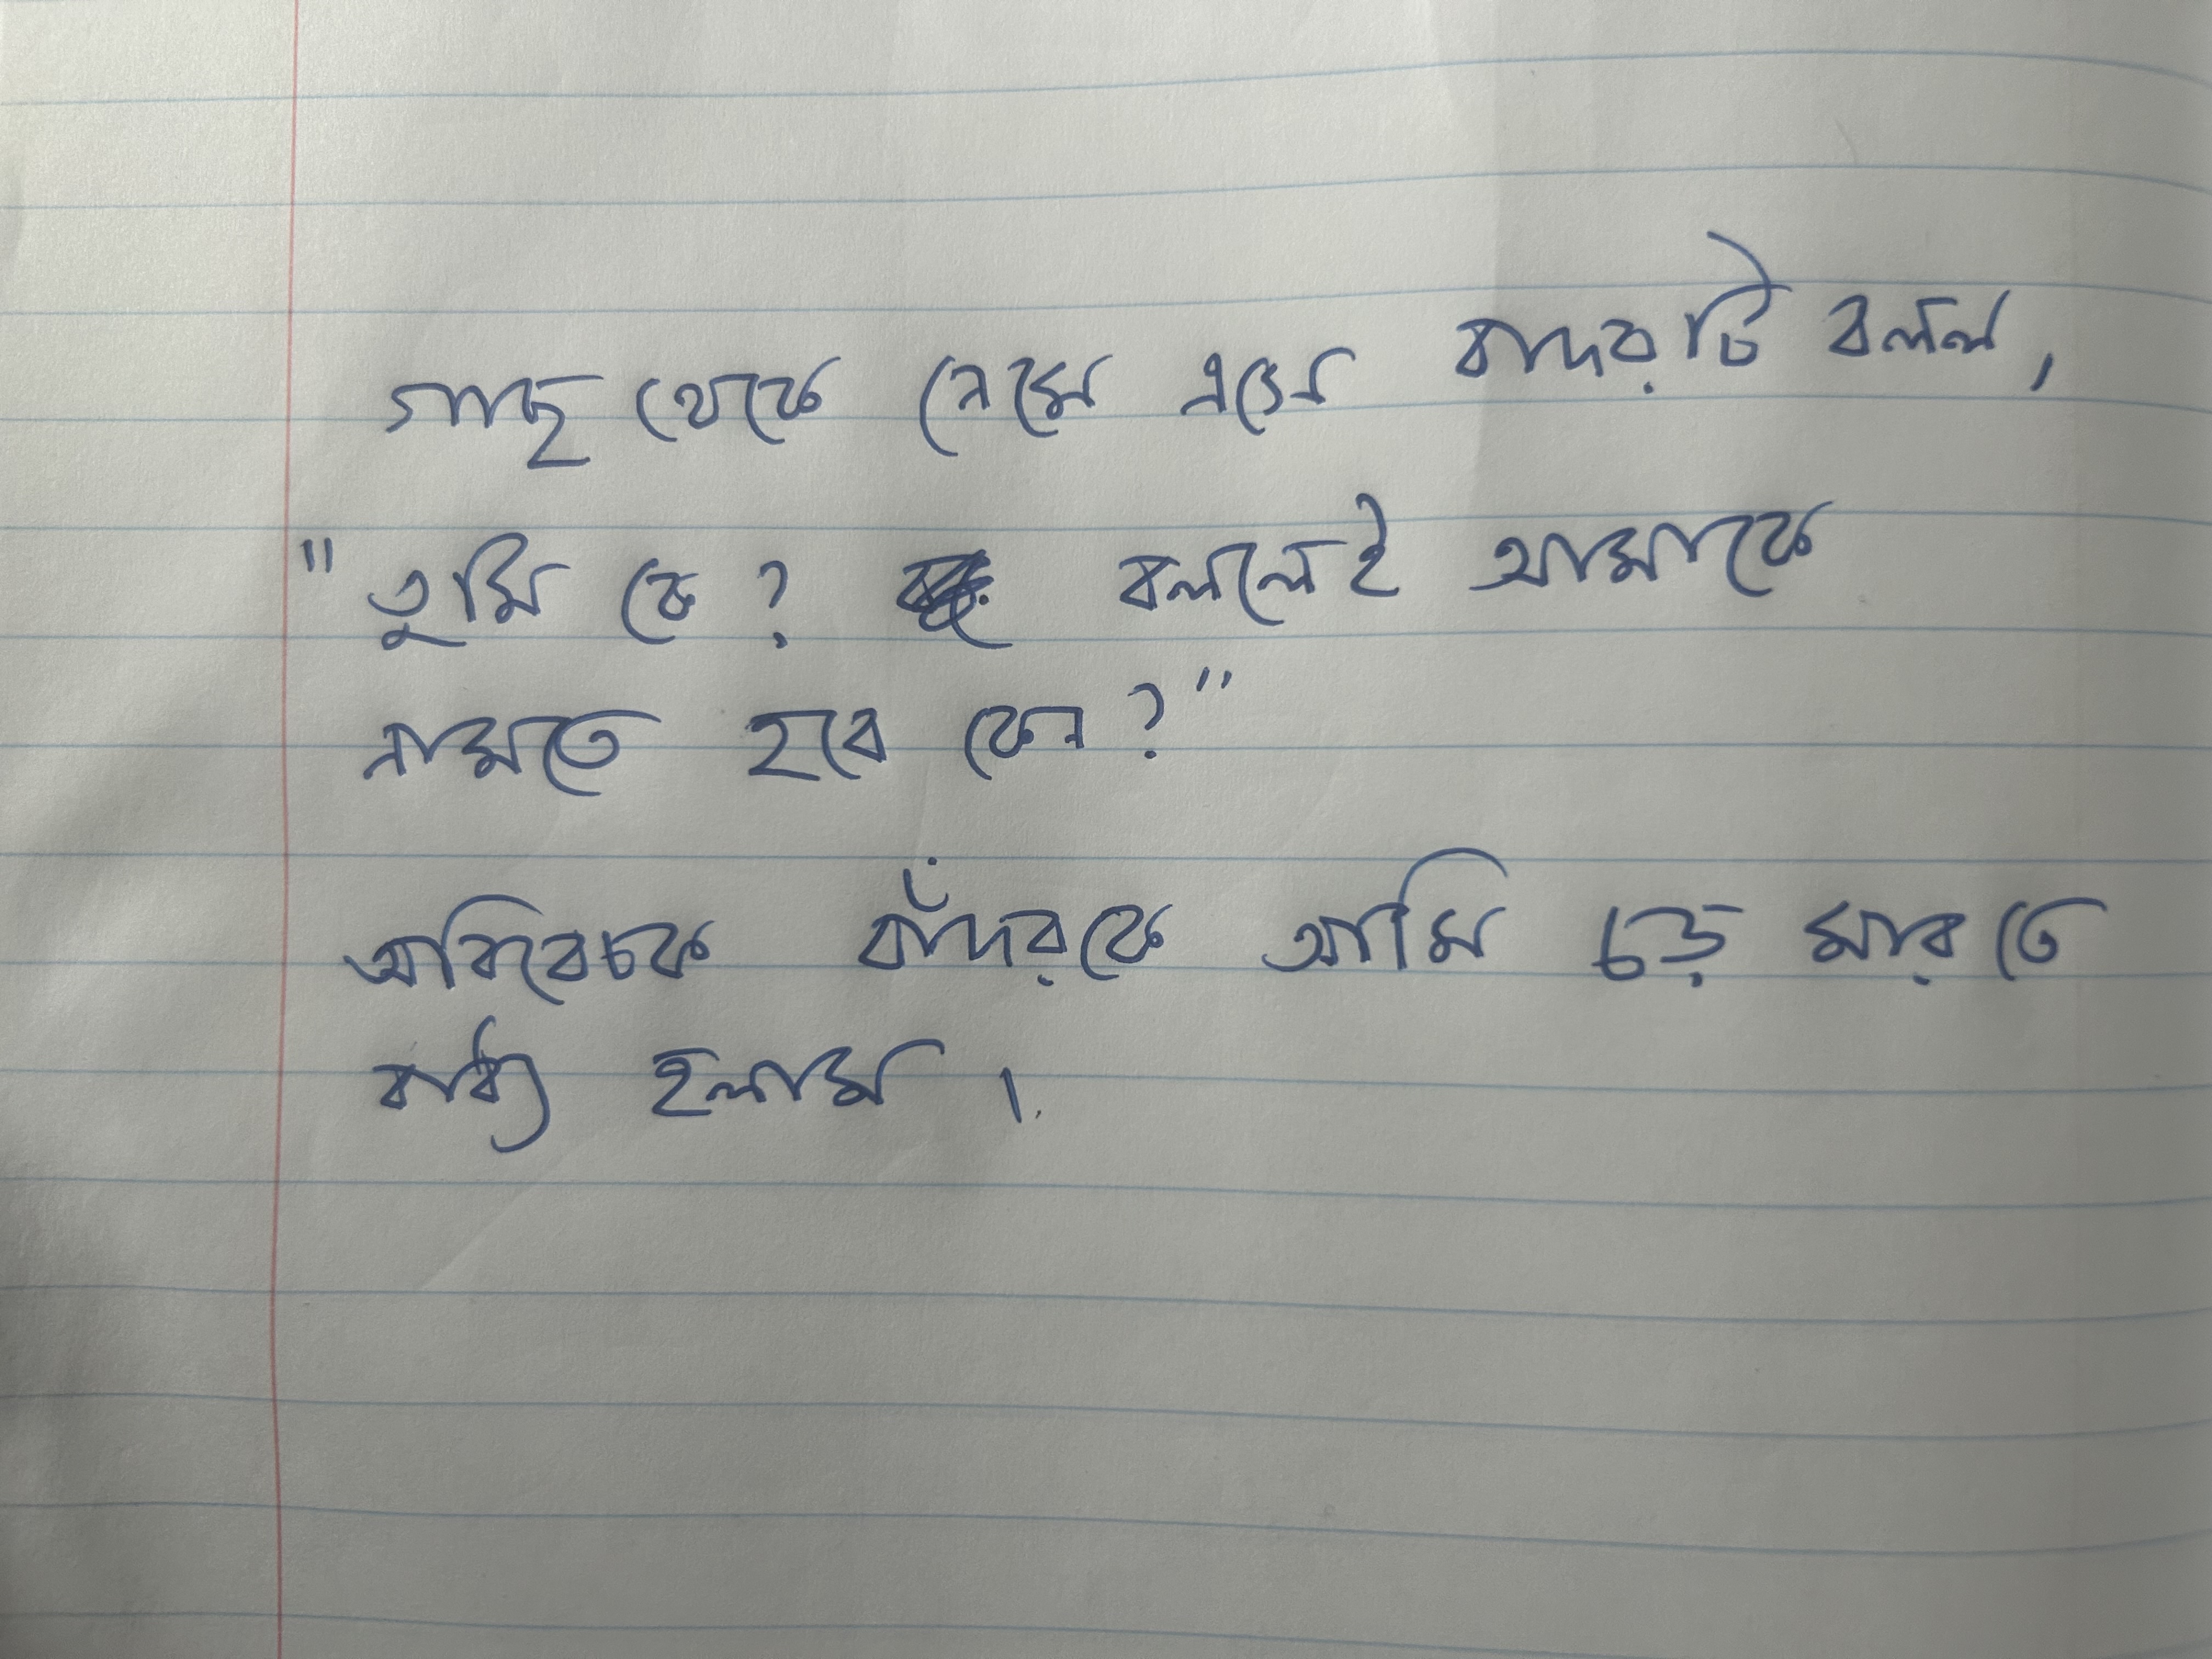 গাছ থেকে নেমে এসে বাদরটি বলল,
"তুমি কে? বললেই আমাকে
নামতে হবে কেন?"
অবিবেচক বাঁদরকে আমি চড় মারতে
বাধ্য হলাম।